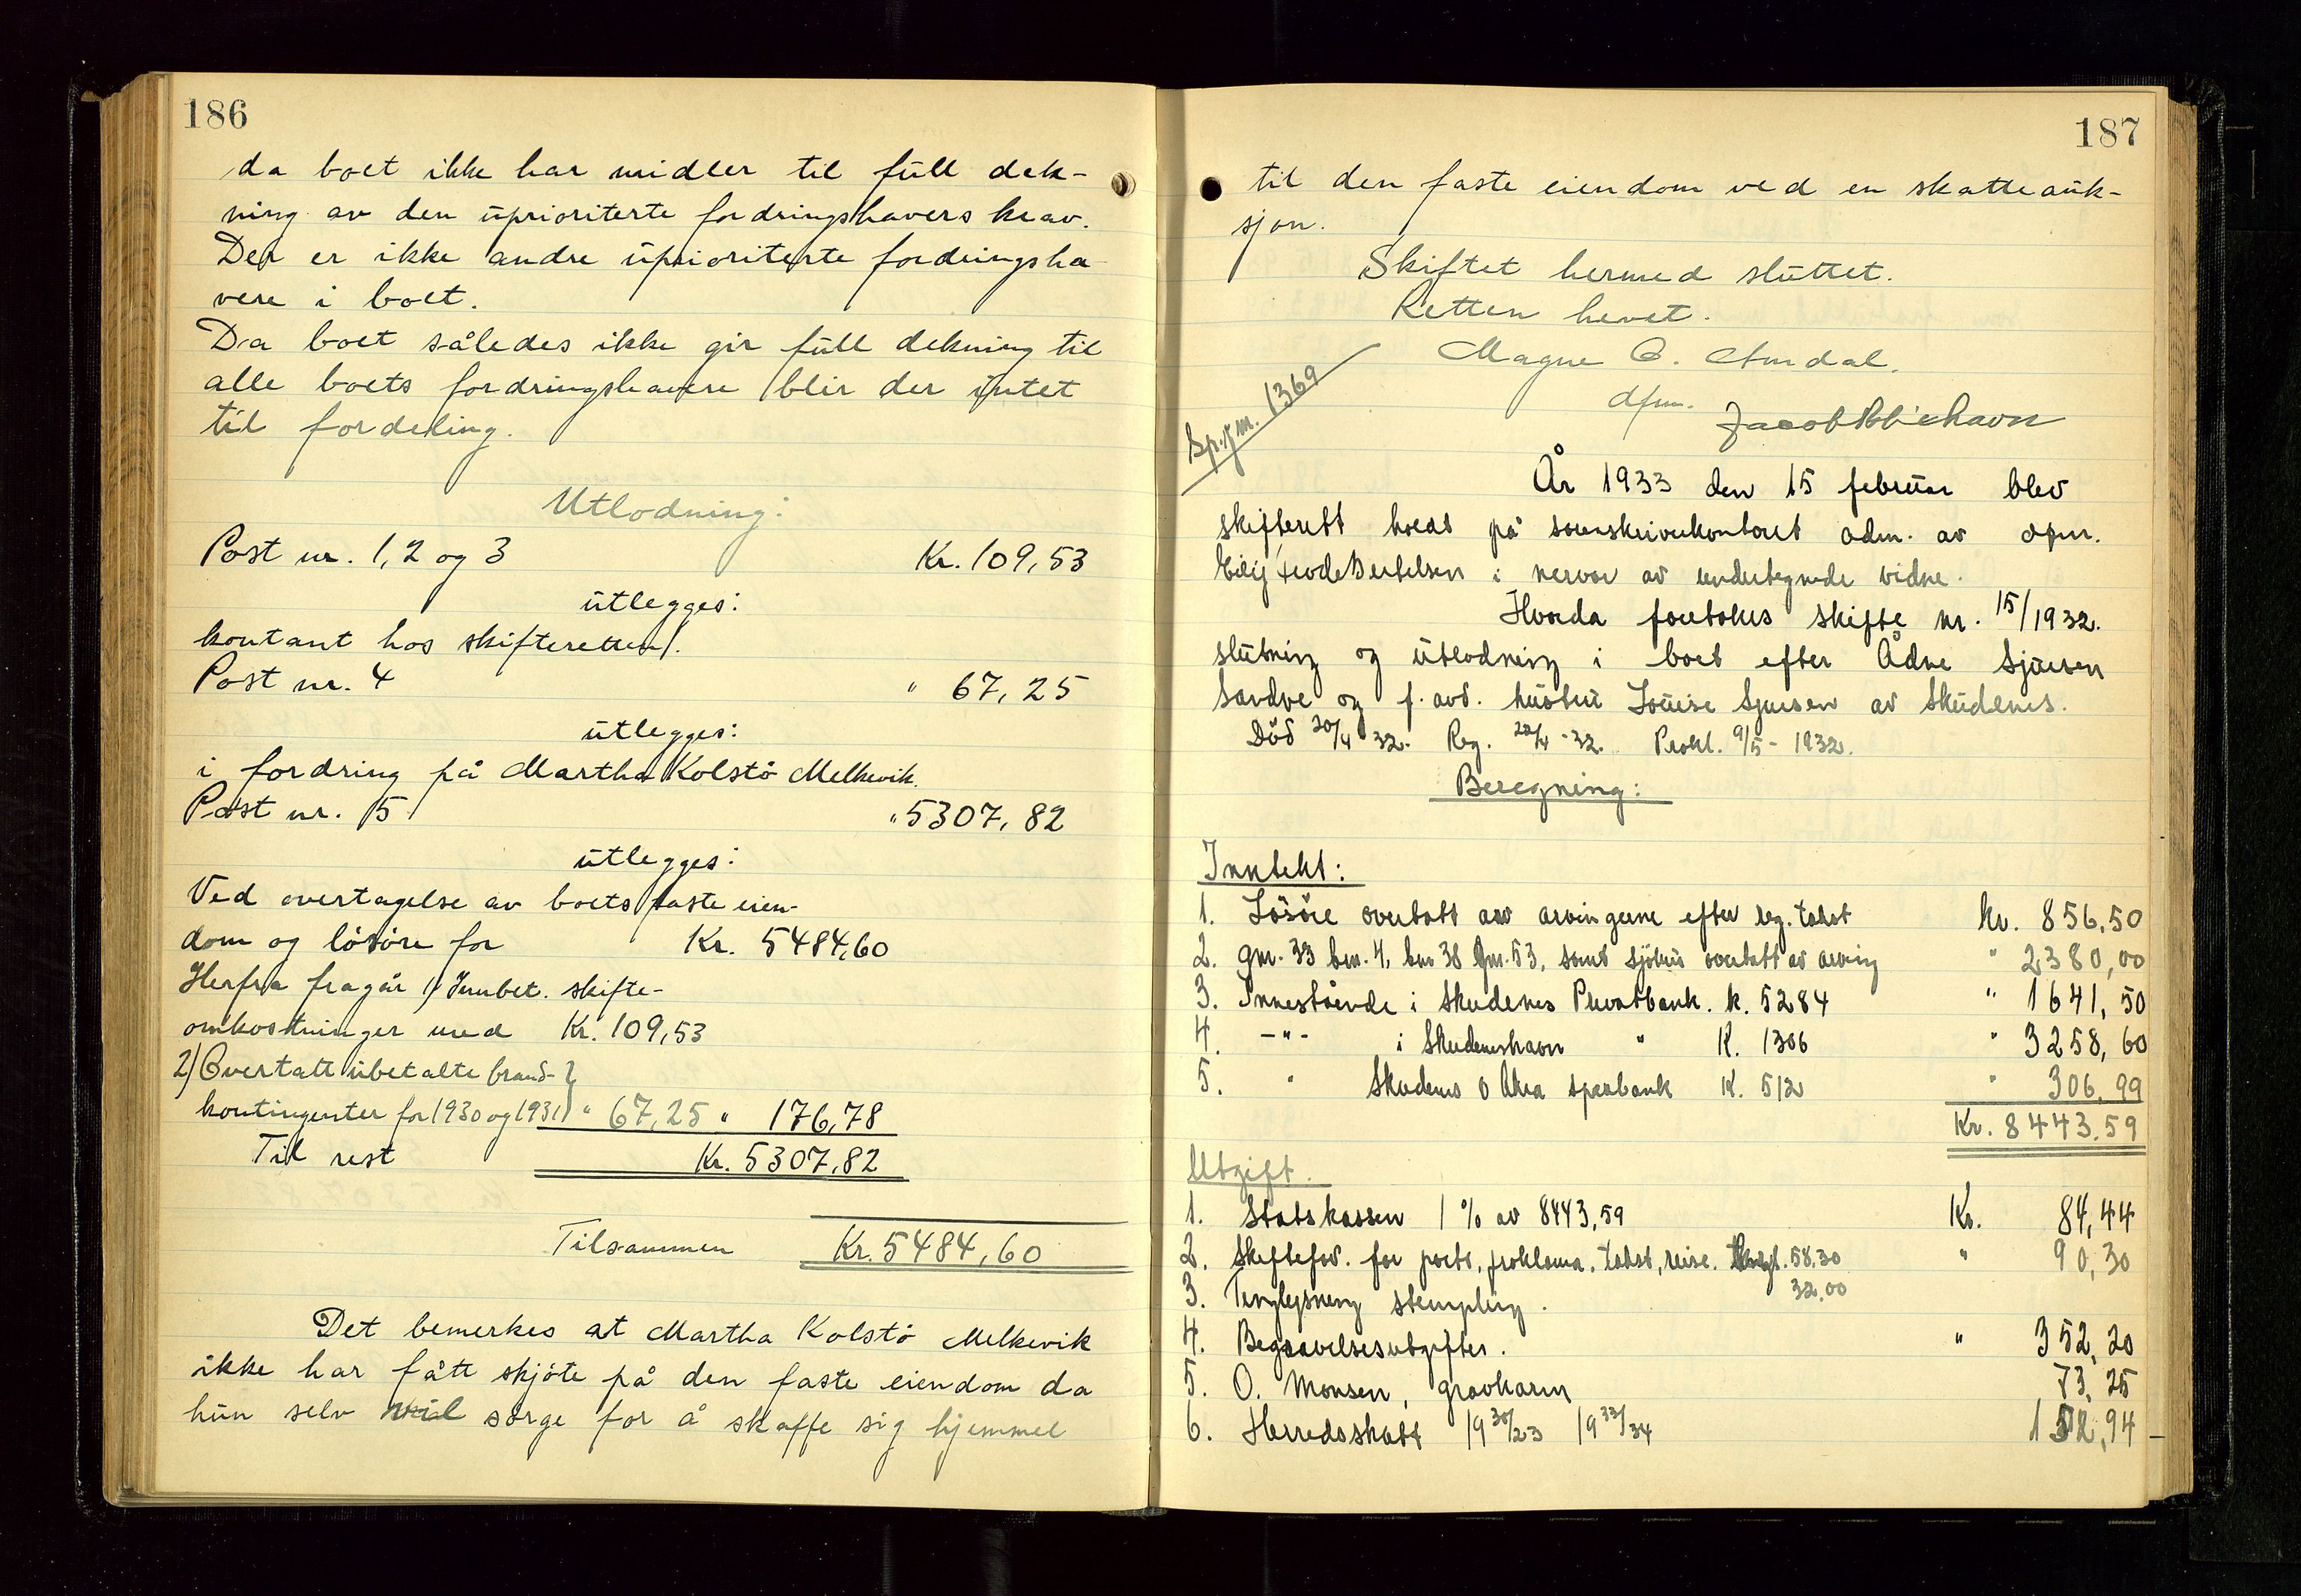 186
da boet ikke har midler til full dek-
ning av den uprioriterte fordringshavers krav.
Der er ikke andre uprioriterte fordringsha
vere i boet.
Da boet således ikke gir full dekning til
alle boets fordringshavere blir der intet
til fordeling.
Utlodning:
Post nr. 1, 2 og 3 Kr. 109,53
utlegges:
kontant hos skifteretten.
Post nr. 4 " 67,25
utlegges:
i fordring på Martha Kolstö Melkevik.
Post nr. 5 " 5307,82
utlegges:
Ved overtagelse av boets faste eien-
dom og lösöre for Kr. 5484,60
Herfra fragår 1) Innbet. skifte-
omkostninger med Kr. 109,53
2) Overtatt ubetalte brand-
kontingenter for 1930 og 1931 " 67,25 " 176,78
Til rest Kr. 5307,82
Tilsammen Kr. 5484,60
Det bemerkes at Martha Kolstö Melkevik
ikke har fått skjöte på den faste eiendom da
hun selv vil sörge for å skaffe sig hjemmel
187
til den faste eiendom ved en skatteauk-
sjon.
Skiftet hermed sluttet.
Retten hevet.
Magne O. Amdal.
dfm.
1369
År 1933 den 15 februar blev
skifterett holdt på sorenskriverkontoret adm. av dfm.
Bertelsen i nervær av undertegnede vidne.
Hvorda foretokes skifte nr. 15/1932.
slutning og utlodning i boet efter Ådne Sjursen
Sandve og f. avd. hustru Louise Sjursen av Skudenes.
Död 20/4 32. Reg. 22/4 - 32. Prokl. 9/5 - 1932.
Beregning:
Inntekt:
1. Lösöre overtatt av arvingerne efter reg. takst kr. 856,50
2. gnr. 33 bnr. 4, bnr 38 gnr. 53, samt sjöhus overtatt av arving " 2380,00
3. Innestående i Skudenes Privatbank. k. 5284 " 1641,50
4. -"- i Skudeneshavn " K. 1306 " 3258,60
5. " Skudenes o Åkra sparbank K. 512 " 306,99
Kr. 8443.59
Utgift.
1. Statskassen 1 % av 8443,59 Kr. 84,44
2. Skiftefor. for porto, proklama, takst, reise. 58.30 " 90,30
3. Tinglysning stempling. 32.00
4. Begravelsesutgifter. " 352,20
5. O. Monsen, gravkarm 73,25
6. Herredsskatt 19 30/23 19 33/34